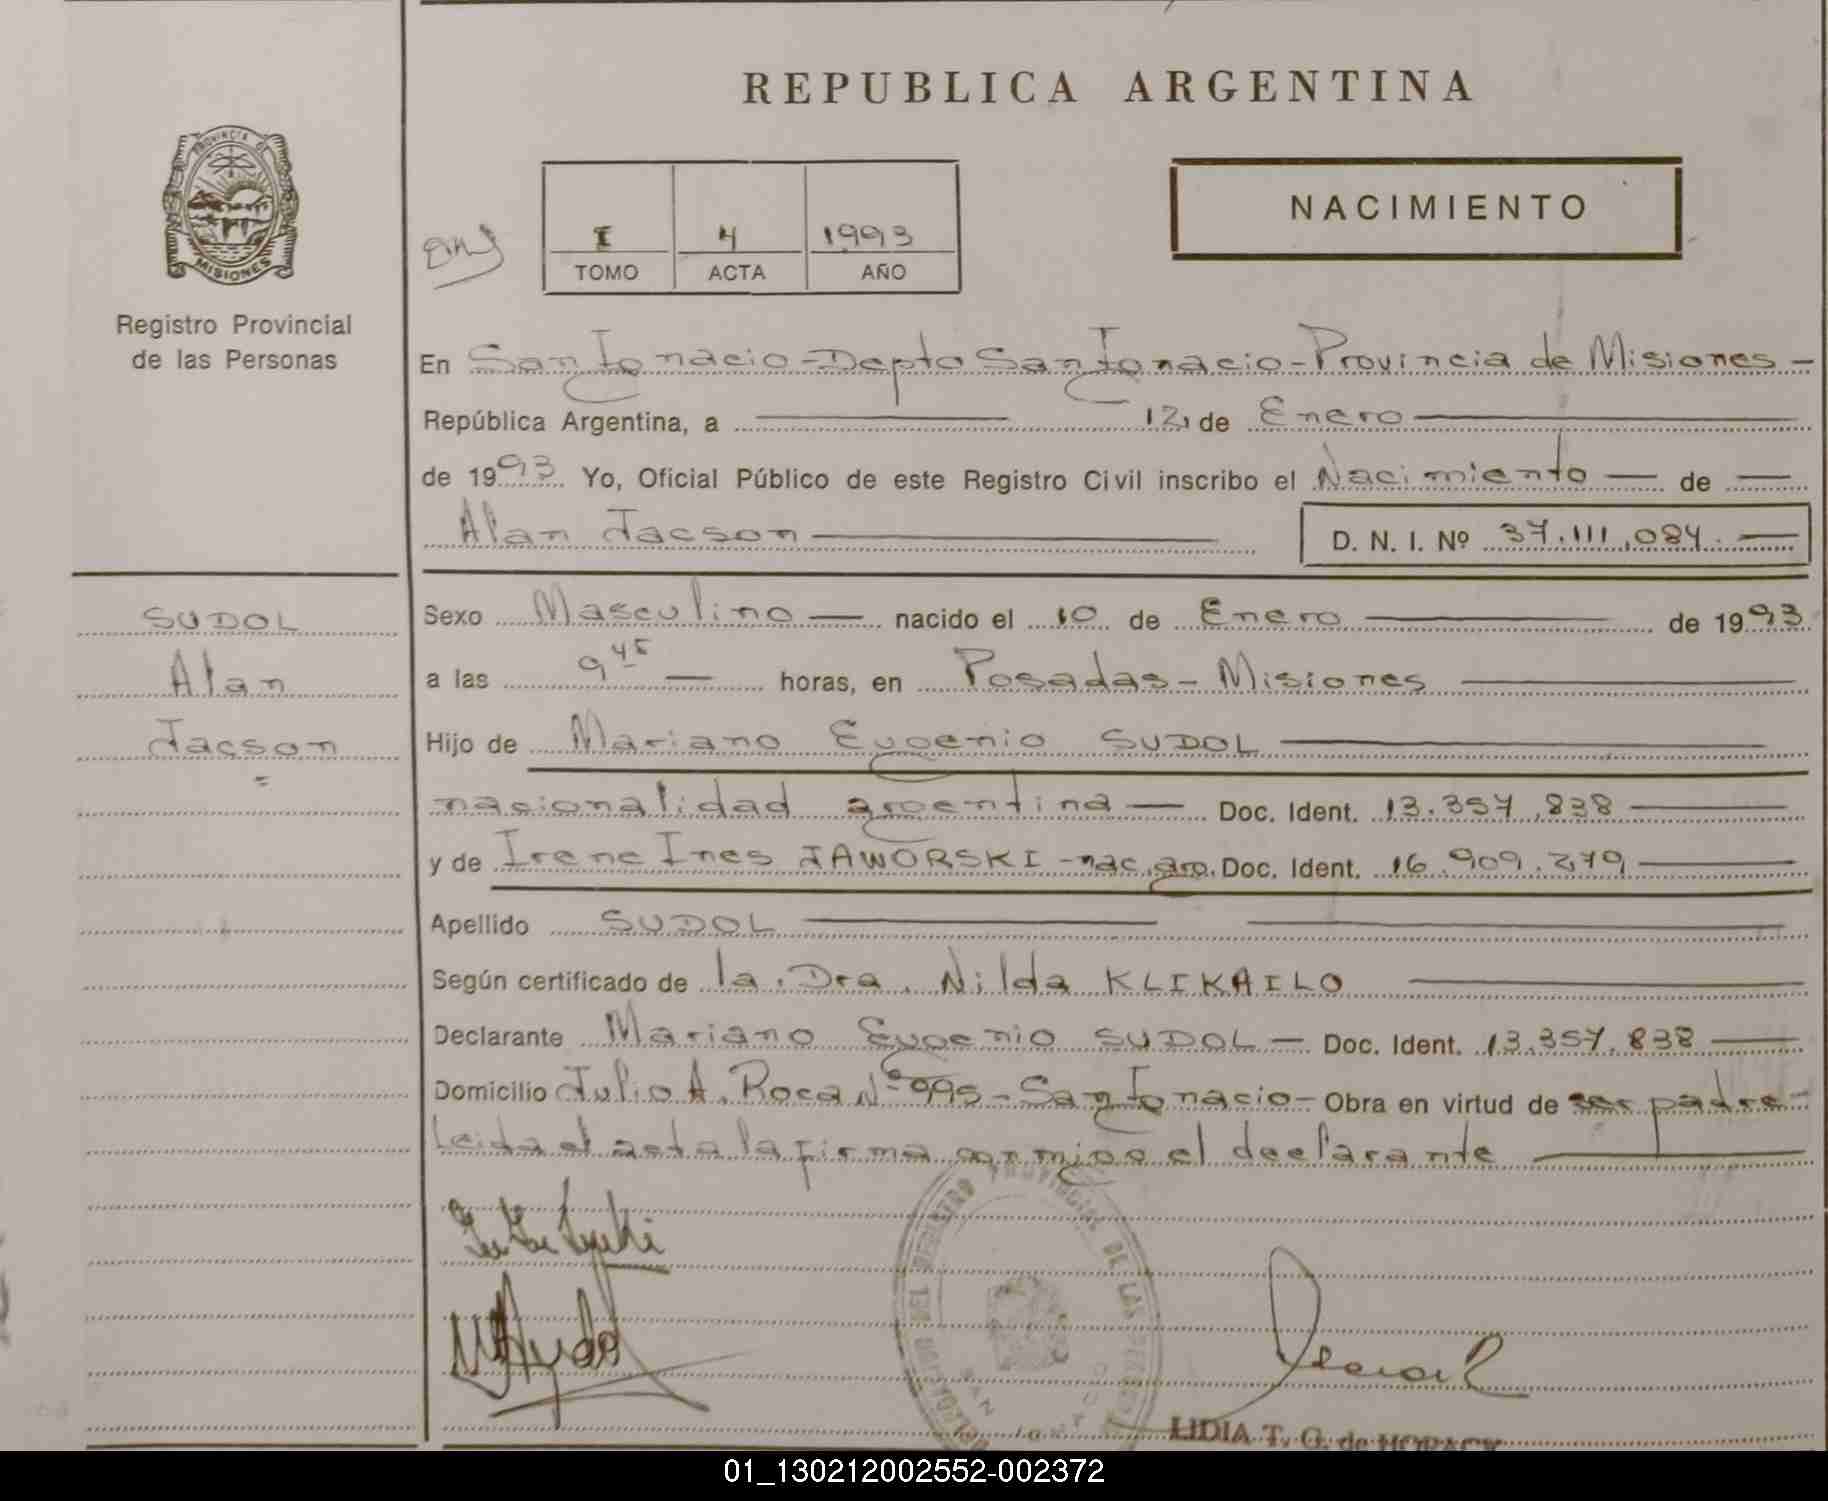 REPUBLICA ARGENTINA
PROVINCIA DE
MISIONES
Registro Provincial
de las Personas
I 4 1993
TOMO ACTA AÑO
NACIMIENTO
En San Ignacio - Depto San Ignacio - Provincia de Misiones -
República Argentina, a 12, de Enero
de 1993 Yo, Oficial Público de este Registro Civil inscribo el Nacimiento - de -
Alan Jacson D. N. I. Nº 37.111.084. -
SUDOL
Alan
Jacson
=
Sexo Masculino - nacido el 10 de Enero de 1993
a las 9 45 - horas, en Posadas - Misiones
Hijo de Mariano Eugenio SUDOL
nacionalidad argentina - Doc. Ident. 13.357.838
y de Irene Ines JAWORSKI - nac. arg. Doc. Ident. 16.909.279
Apellido SUDOL
Según certificado de la Dra. Nilda KLIKAILO
Declarante Mariano Eugenio SUDOL - Doc. Ident. 13.357.838
Domicilio Julio A. Roca Nº 995 - San Ignacio - Obra en virtud de ser padre -
Leida el acta la firma conmigo el declarante
REGISTRO PROVINCIAL DE LAS
SAN
LIDIA T. G. de
01_130212002552-002372